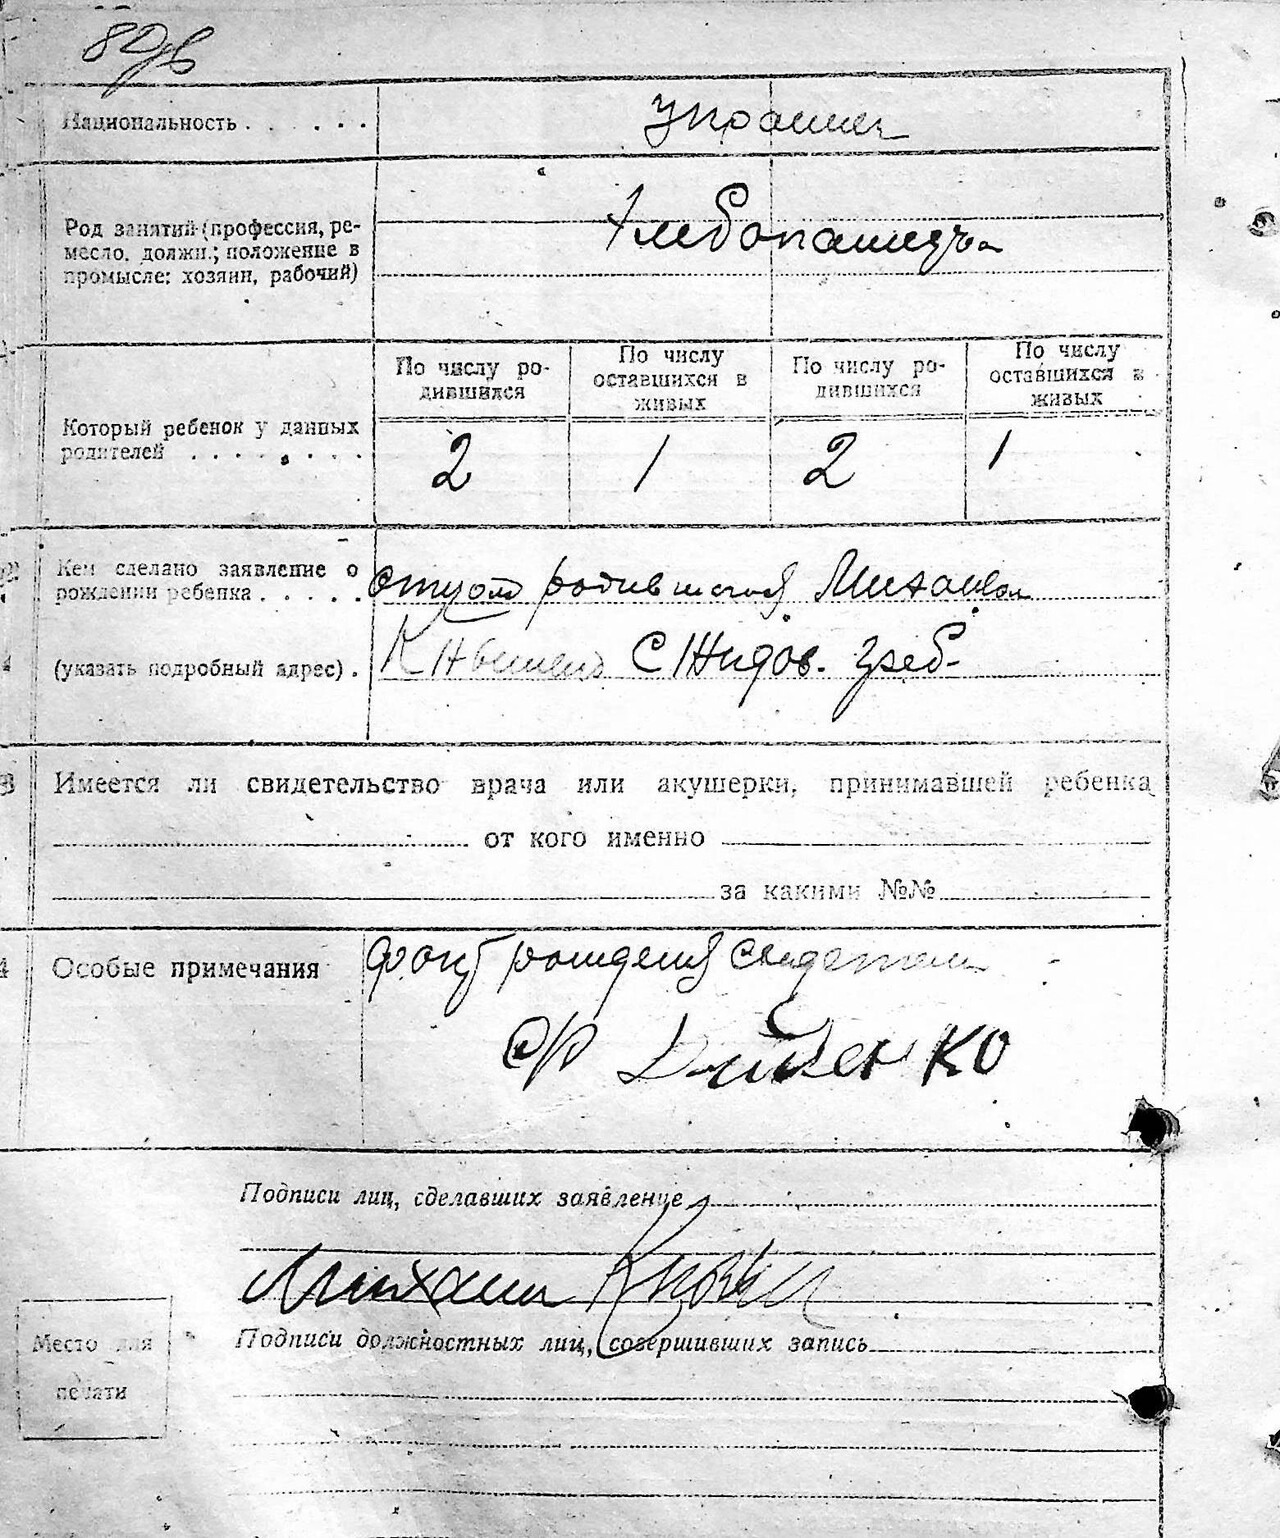 Национальность . . . . . .
украин
Род занятий (профессия, ре-
месло, должн.; положение в
промысле: хозяин, рабочий)
Хлебопашец
По числу ро-
дившихся
По числу
оставшихся в
живых
По числу ро-
дившихся
По числу
оставшихся в
живых
Который ребенок у данных
родителей . . . . . . . .
2 1 2 1
Кем сделано заявление о
рождении ребенка . . . . .
отцом родившегося Михаилом
(указать подробный адрес) .
С Жидов. Греб-
Имеется ли свидетельство врача или акушерки, принимавшей ребенка
от кого именно
за какими №№
Особые примечания
факт рождения
Подписи лиц, сделавших заявление
Михаил
Подписи должностных лиц, совершивших запись
Место для
печати